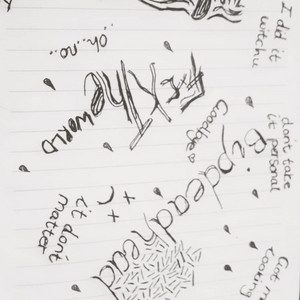 I did it
witchu
..oh..no..
F*ck The
WORLD
Goodbye
don't take
it personal
Dipdeadhead
it don't
matter